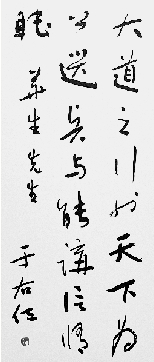 大道之行也天下為
公選賢与能講信修
睦
華生先生
于右任